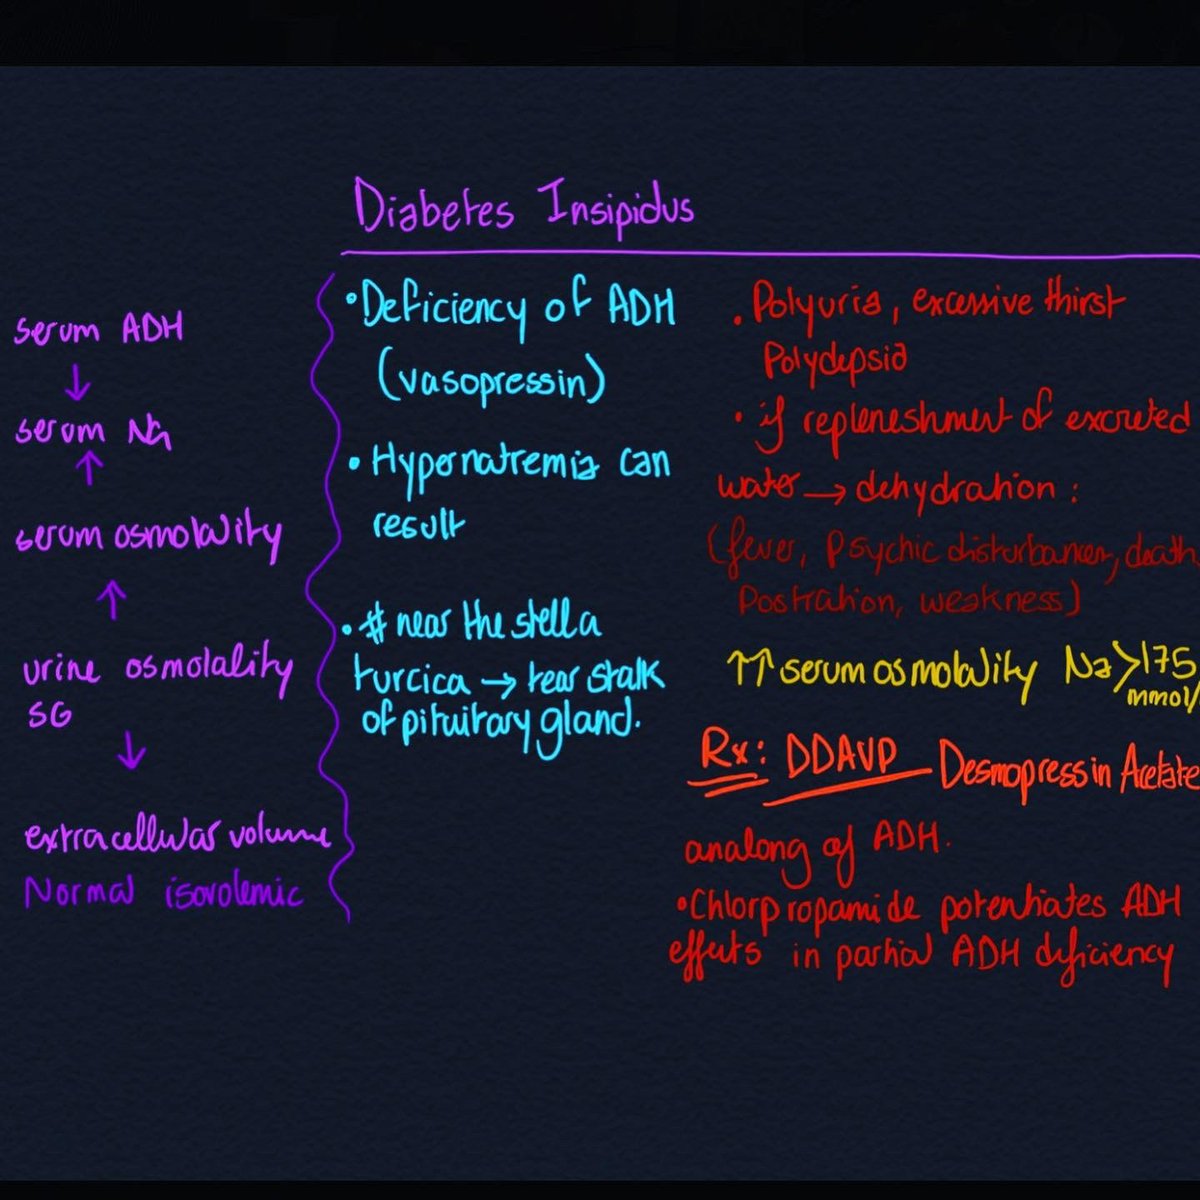 Diabetes Insipidus
serum ADH
↓
serum Na
↑
serum osmolality
↑
urine osmolality
SG
↓
extracellular volume
Normal isovolemic
• Deficiency of ADH
(vasopressin)
• Hypernatremia can
result
• # near the stella
turcica → tear stalk
of pituitary gland.
• Polyuria, excessive thirst
Polydepsia
• if repleneshment of excreted
water → dehydration :
(fever, Psychic disturbances, death,
Postration, weakness)
↑↑ serum osmolality Na >175
mmol/
Rx: DDAVP — Desmopressin Acetate
analong of ADH.
• Chlorpropamide potentiates ADH
effects in partial ADH deficiency